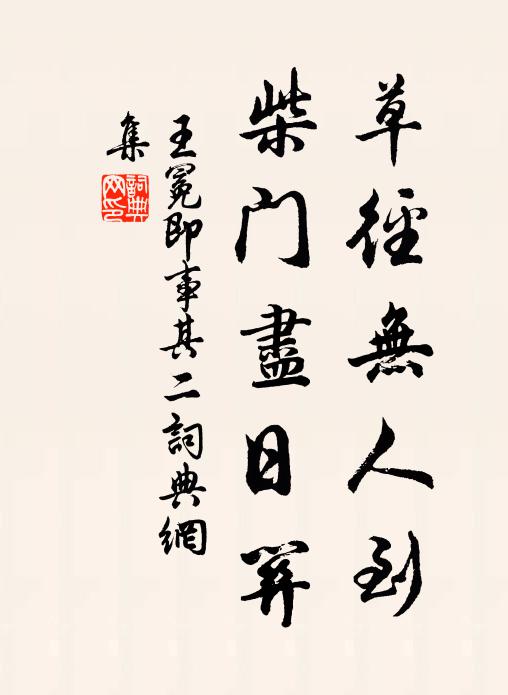 草徑無人到
柴門盡日關
王冕即事其二詞典網
集
詞典網印